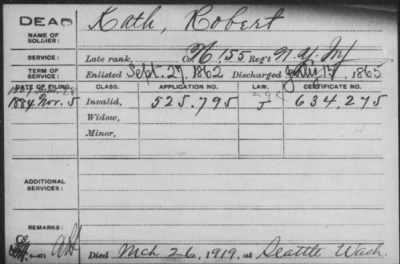 DEAD Kath, Robert
NAME OF
SOLDIER:
SERVICE: Late rank, Co. H 155 Reg't N.Y. Inf
TERM OF
SERVICE: Enlisted Sept. 27, 1862 Discharged July 15, 1865
DATE OF FILING. CLASS. APPLICATION NO. LAW. CERTIFICATE NO.
1884 Nov. 5 Invalid, 525.795 J 634.275
Widow,
Minor,
ADDITIONAL
SERVICES:
REMARKS:
Died Mch 26, 1919, at Seattle Wash.